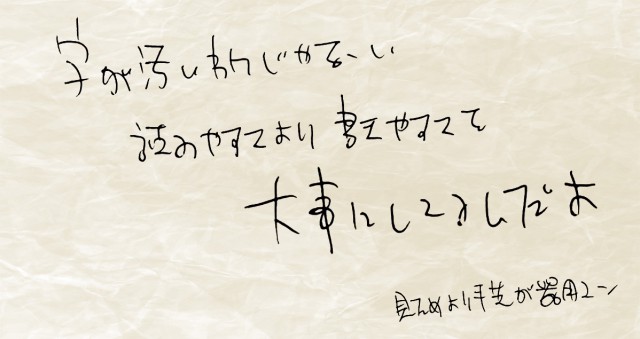 字が汚いわけじゃない
読みやすさより書きやすさを
大事にしてるんだよ
見ためより手先が器用